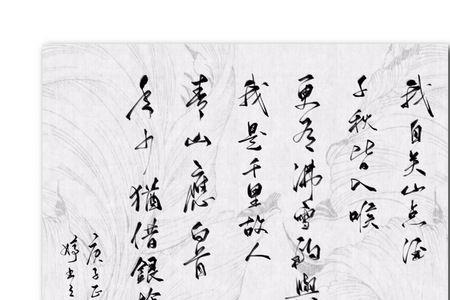 我自关山点酒
千秋皆入喉
更有沸雪酌與
我是千里故人
青山應白首
年少猶借銀
庚子正
婷书